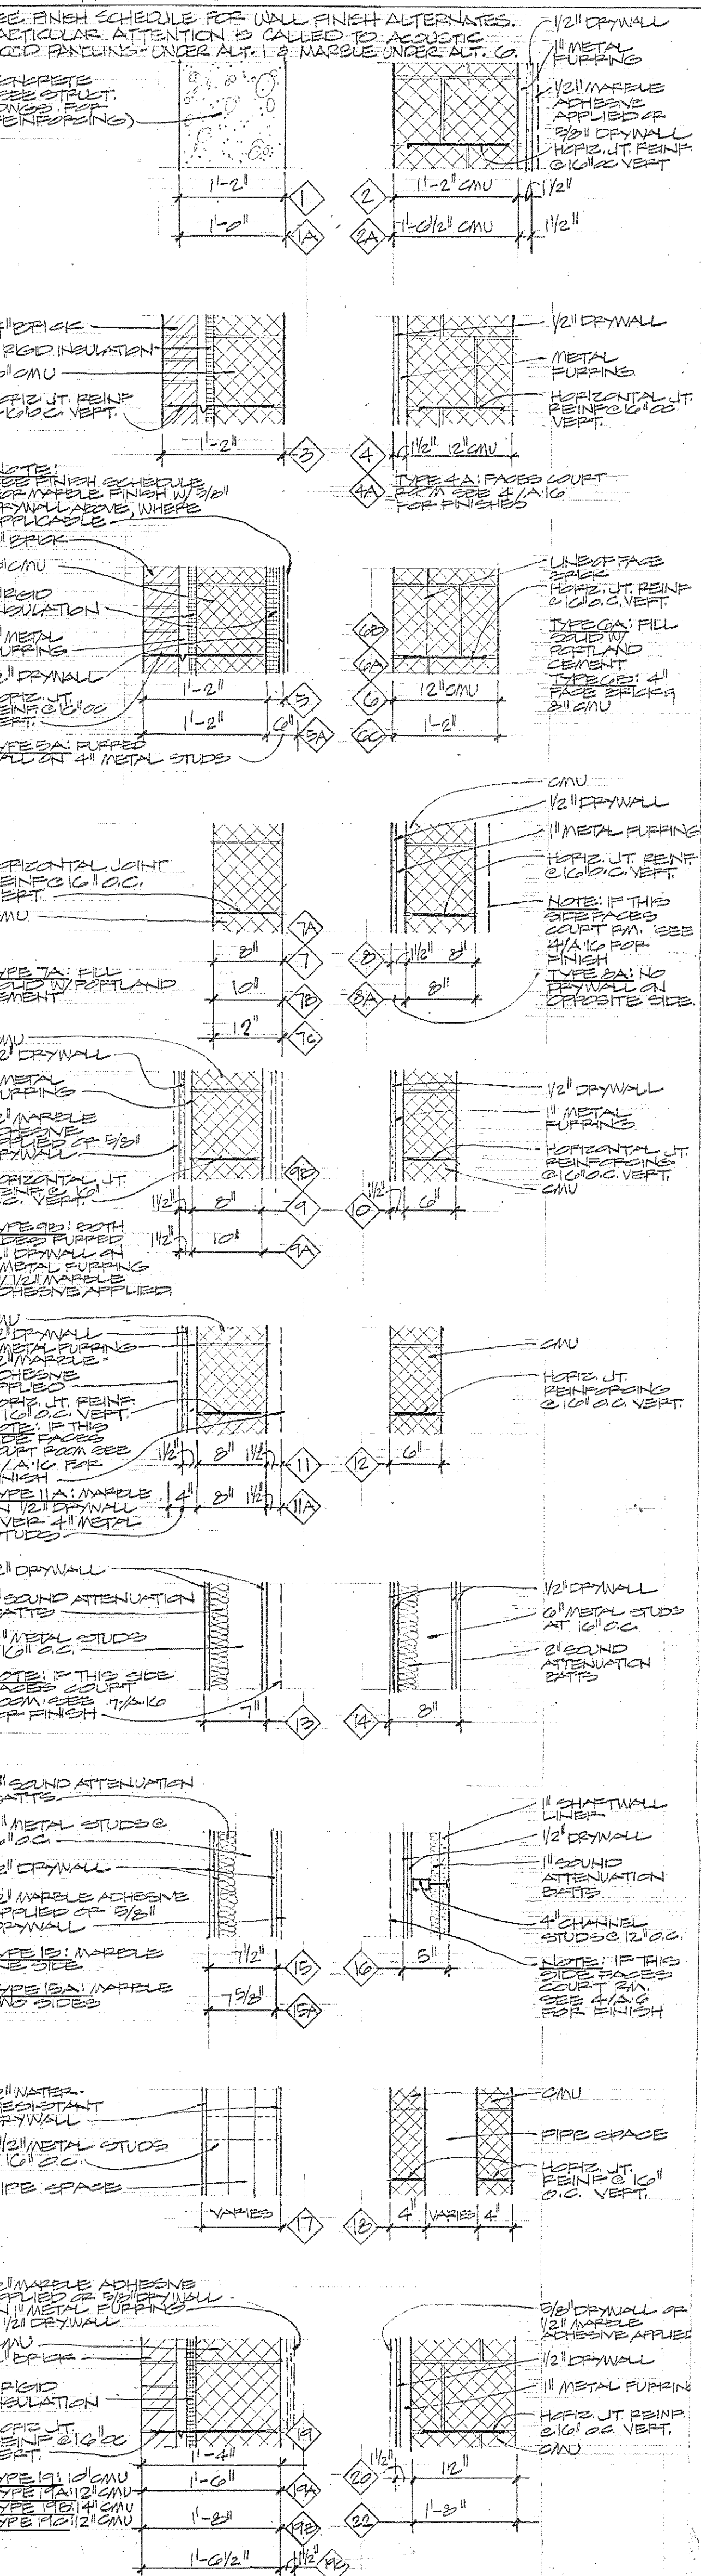 EE FINISH SCHEDULE FOR WALL FINISH ALTERNATES.
ARTICULAR ATTENTION IS CALLED TO ACOUSTIC
OOD PANELING - UNDER ALT. 1 & MARBLE UNDER ALT. 6.
ONCRETE
SEE STRUCT.
WGS. FOR
REINFORCING)
1'-2"
1
1'-0"
1A
1/2" DRYWALL
1" METAL
FURRING
1/2" MARBLE
ADHESIVE
APPLIED OR
5/8" DRYWALL
HORIZ. JT. REINF.
@ 16" OC VERT
2
1'-2" CMU
1 1/2"
2A
1'-6 1/2" CMU
1 1/2"
4" BRICK
RIGID INSULATION
CMU
HORIZ. JT. REINF
@ 16" O.C. VERT.
1'-2"
3
1/2" DRYWALL
METAL
FURRING
HORIZONTAL JT.
REINF @ 16" OC
VERT.
4
1 1/2"
12" CMU
4A
TYPE 4A: FACES COURT
ROOM SEE 4/A.16
FOR FINISHES
NOTE:
SEE FINISH SCHEDULE
FOR MARBLE FINISH W/ 5/8"
DRYWALL ABOVE, WHERE
APPLICABLE
" BRICK
" CMU
RIGID
INSULATION
" METAL
FURRING
1/2" DRYWALL
HORIZ. JT.
REINF. @ 16" OC
VERT.
1'-2"
5
1'-2"
6"
5A
TYPE 5A: FURRED
WALL ON 4" METAL STUDS
LINE OF FACE
BRICK
HORIZ. JT. REINF
@ 16" O.C. VERT.
TYPE 6A: FILL
SOLID W/
PORTLAND
CEMENT
TYPE 6B: 4"
FACE BRICK &
8" CMU
6B
6A
6
12" CMU
6C
1'-2"
HORIZONTAL JOINT
REINF @ 16" O.C.
VERT.
CMU
TYPE 7A: FILL
SOLID W/ PORTLAND
CEMENT
7A
8"
7
10"
7B
12"
7C
CMU
1/2" DRYWALL
1" METAL FURRING
HORIZ. JT. REINF
@ 16" O.C. VERT.
NOTE: IF THIS
SIDE FACES
COURT RM. SEE
4/A.16 FOR
FINISH
TYPE 8A: NO
DRYWALL ON
OPPOSITE SIDE.
8
1 1/2"
8"
8A
8"
CMU
1/2" DRYWALL
METAL
FURRING
1/2" MARBLE
ADHESIVE
APPLIED OR 5/8"
DRYWALL
HORIZONTAL JT.
REINF. @ 16"
O.C. VERT.
9B
1 1/2"
8"
9
1 1/2"
10"
9A
TYPE 9B: BOTH
SIDES FURRED
" DRYWALL ON
METAL FURRING
W/ 1/2" MARBLE
ADHESIVE APPLIED.
1/2" DRYWALL
1" METAL
FURRING
HORIZONTAL JT.
REINFORCING
@ 16" O.C. VERT.
CMU
10
1 1/2"
6"
MU
2" DRYWALL
METAL FURRING
2" MARBLE -
ADHESIVE
APPLIED
HORIZ. JT. REINF.
16" O.C. VERT.
NOTE: IF THIS
SIDE FACES
COURT ROOM SEE
/A.16 FOR
FINISH
1 1/2"
8"
1 1/2"
11
TYPE 11A: MARBLE
N 1/2" DRYWALL
OVER 4" METAL
STUDS
4"
8"
1 1/2"
11A
CMU
HORIZ. JT.
REINFORCING
@ 16" O.C. VERT.
12
6"
2" DRYWALL
SOUND ATTENUATION
BATTS
" METAL STUDS
16" O.C.
NOTE: IF THIS SIDE
FACES COURT
ROOM. SEE 7/A.16
FOR FINISH
7"
13
1/2" DRYWALL
6" METAL STUDS
AT 16" O.C.
2" SOUND
ATTENUATION
BATTS
14
8"
" SOUND ATTENUATION
BATTS
" METAL STUDS @
6" O.C.
2" DRYWALL
2" MARBLE ADHESIVE
APPLIED OR 5/8"
DRYWALL
TYPE 15: MARBLE
ONE SIDE
TYPE 15A: MARBLE
TWO SIDES
7 1/2"
15
7 5/8"
15A
1" SHAFTWALL
LINER
1/2" DRYWALL
1" SOUND
ATTENUATION
BATTS
4" CHANNEL
STUDS @ 12" O.C.
NOTE: IF THIS
SIDE FACES
COURT RM.
SEE 4/A.16
FOR FINISH
16
5"
2" WATER-
RESISTANT
DRYWALL
1/2" METAL STUDS
16" O.C.
PIPE SPACE
VARIES
17
CMU
PIPE SPACE
HORIZ. JT.
REINF @ 16"
O.C. VERT.
18
4"
VARIES
4"
2" MARBLE ADHESIVE
APPLIED OR 5/8" DRYWALL
N 1" METAL FURRING
1/2" DRYWALL
CMU
" BRICK
RIGID
INSULATION
HORIZ. JT.
REINF @ 16" OC
VERT.
TYPE 19: 10" CMU
TYPE 19A: 12" CMU
TYPE 19B: 14" CMU
TYPE 19C: 12" CMU
19
1'-4"
1'-6"
19A
1'-8"
19B
1'-6 1/2"
1 1/2"
19C
5/8" DRYWALL OR
1/2" MARBLE
ADHESIVE APPLIED
1/2" DRYWALL
1" METAL FURRIN
HORIZ. JT. REINF
@ 16" O.C. VERT.
CMU
20
1 1/2"
12"
22
1'-8"